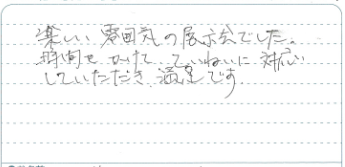 楽しい雰囲気の展示会でした。
時間をかけて ていねいに 対応
していただき、満足です。